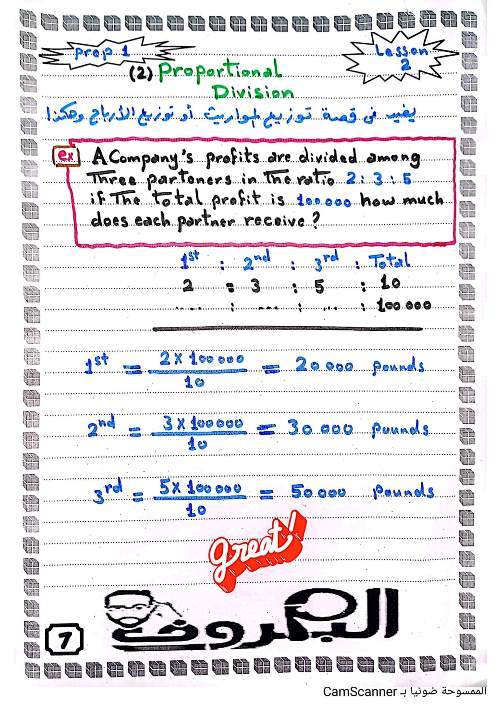 Prop 1
Lesson 2
(2) Proportional
Division
يفيد فى قصة توزيع المواريث أو توزيع الأرباح وهكذا
ex
A Company's profits are divided among
Three partoners in The ratio 2 : 3 : 5
if The Total profit is 100.000 how much
does each partner receive?
1st : 2nd : 3rd : Total
2 : 3 : 5 : 10
.... : .... : ... : 100.000
1st = 2 x 100 000 / 10 = 20.000 pounds
2nd = 3 x 100000 / 10 = 30.000 pounds
3rd = 5 x 100 000 / 10 = 50.000 pounds
great!
7
الممسوحة ضوئيا بـ CamScanner